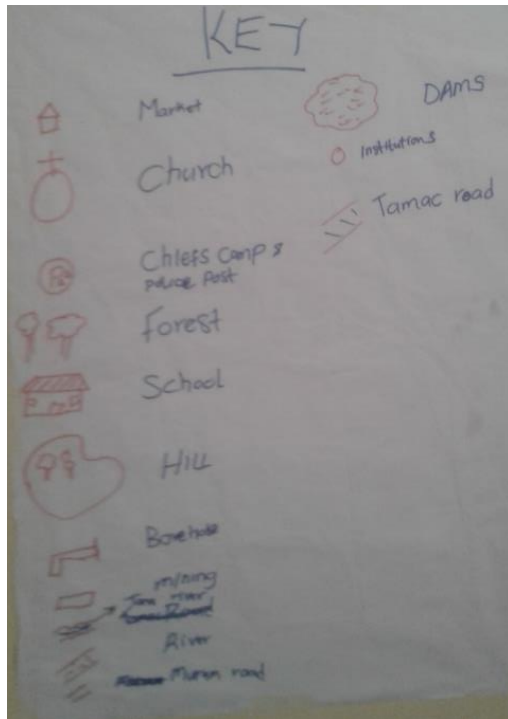 KEY
Market
Church
Chiefs Camp &
Police Post
Forest
School
Hill
Borehole
mining
River
Murram road
DAMS
Institutions
Tamac road